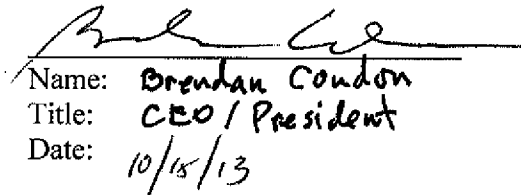 Name: Brendan Condon
Title: CEO / President
Date: 10/15/13